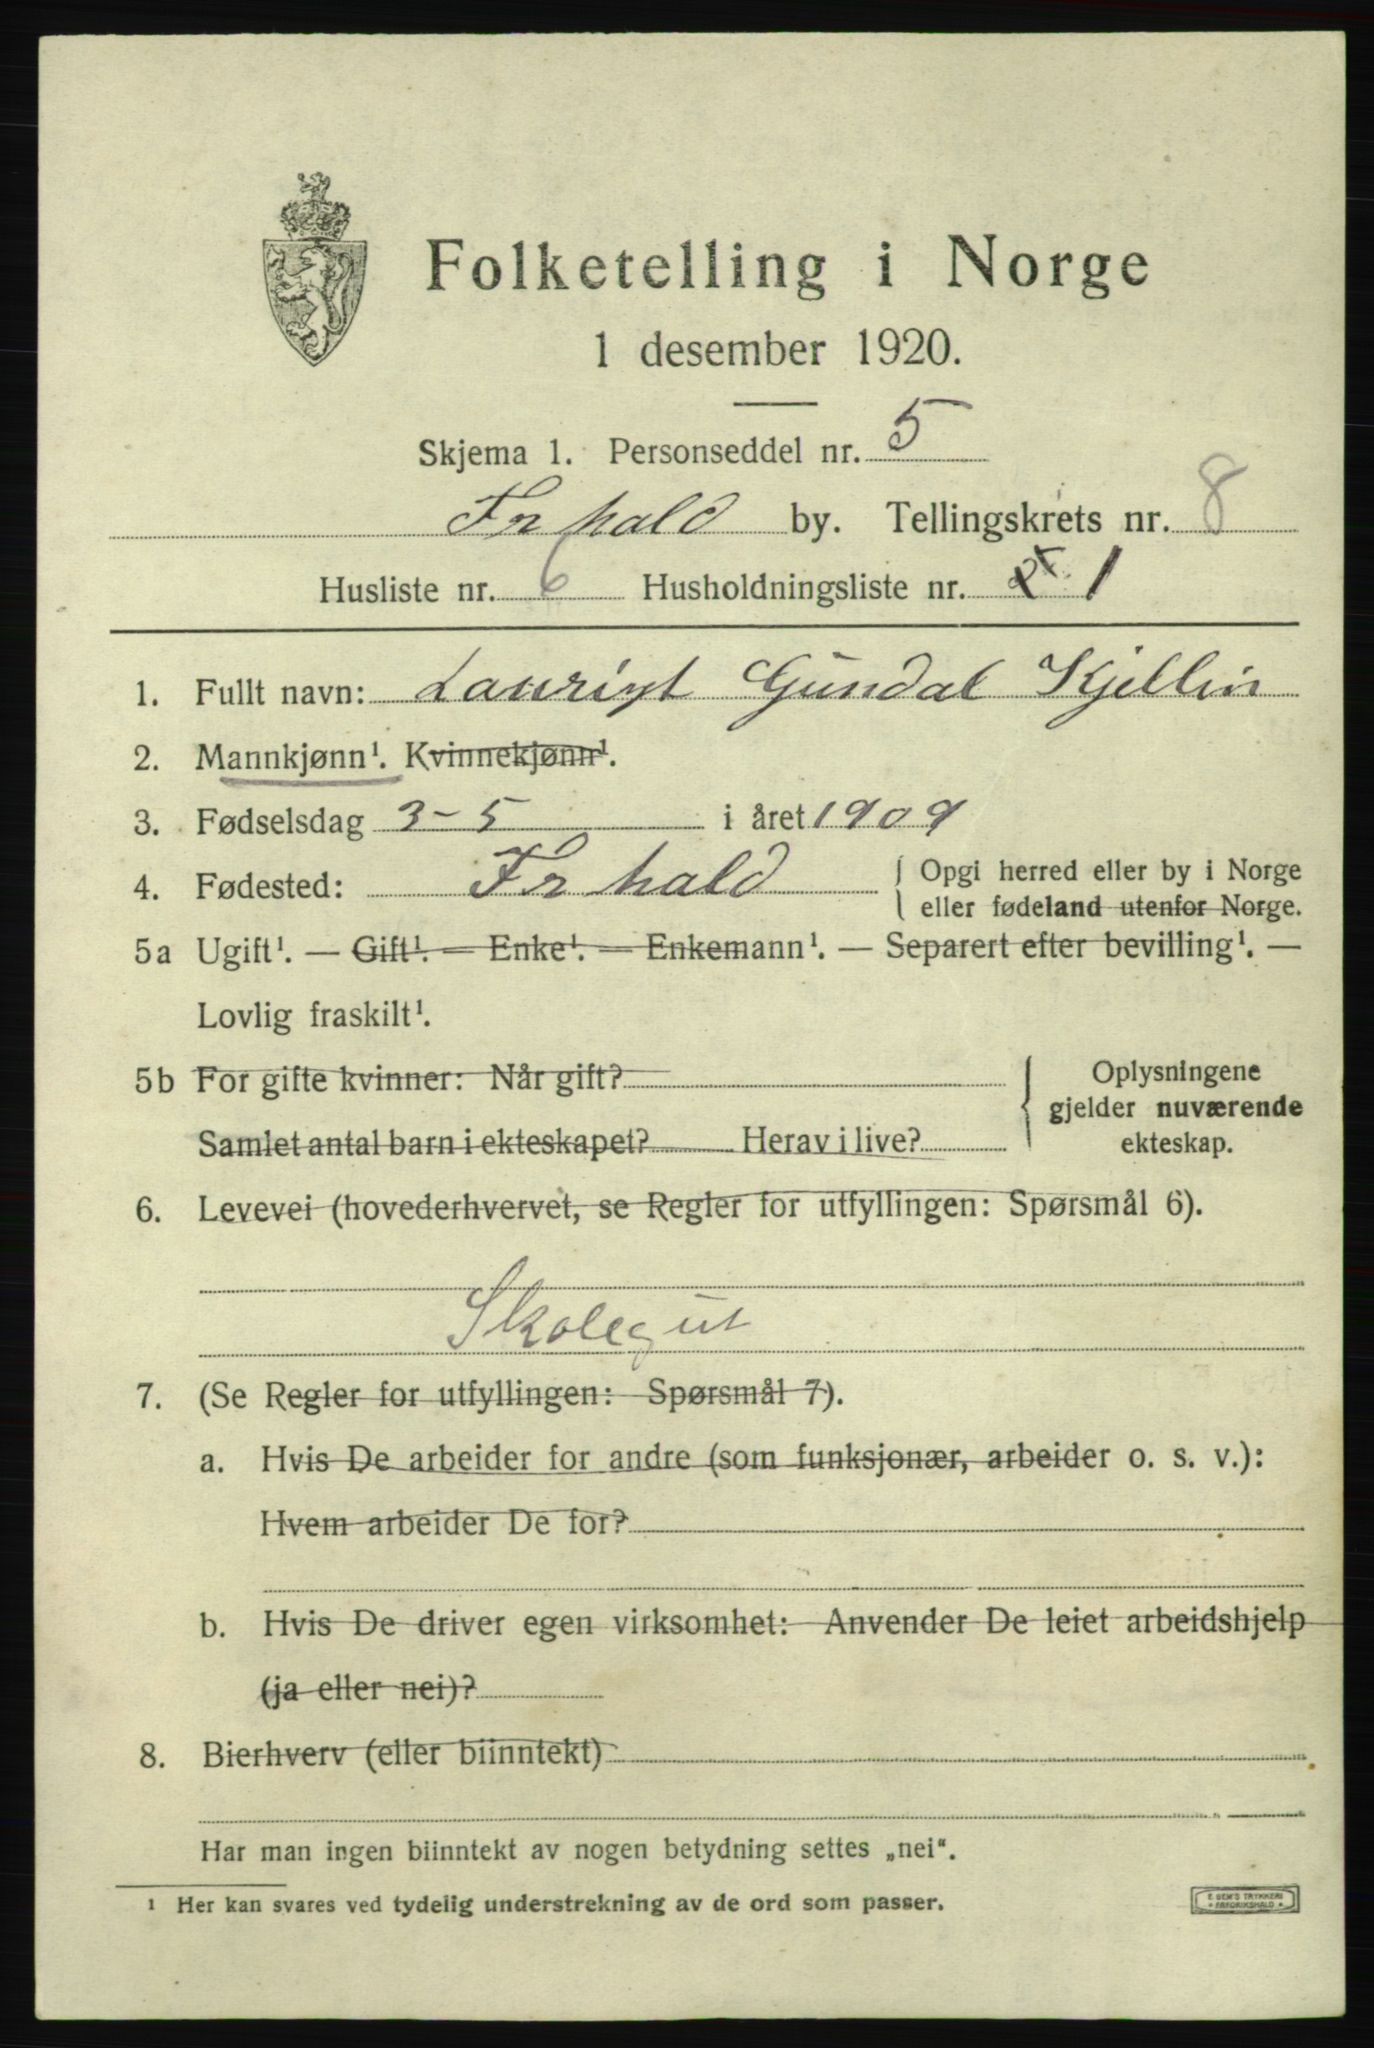 Folketelling i Norge
1 desember 1920.
Skjema 1. Personseddel nr. 5
Fr hald by. Tellingskrets nr. 8
Husliste nr. 6 Husholdningsliste nr. 1
1. Fullt navn: Gundal Kjellin
2. Mannkjønn¹. Kvinnekjønn¹.
3. Fødselsdag 3-5 i året 1909
4. Fødested: Fr hald { Opgi herred eller by i Norge
eller fødeland utenfor Norge.
5a Ugift¹. — Gift¹. — Enke¹. — Enkemann¹. — Separert efter bevilling¹. —
Lovlig fraskilt¹.
5b For gifte kvinner: Når gift?
Samlet antal barn i ekteskapet? Herav i live?
{ Oplysningene
gjelder nuværende
ekteskap.
6. Levevei (hovederhvervet, se Regler for utfyllingen: Spørsmål 6).
Skolegut
7. (Se Regler for utfyllingen: Spørsmål 7).
a. Hvis De arbeider for andre (som funksjonær, arbeider o. s. v.):
Hvem arbeider De for?
b. Hvis De driver egen virksomhet: Anvender De leiet arbeidshjelp
(ja eller nei)?
8. Bierhverv (eller biinntekt)
Har man ingen biinntekt av nogen betydning settes „nei“.
¹ Her kan svares ved tydelig understrekning av de ord som passer.
E. SEM'S TRYKKERI
• FREDRIKSHALD •